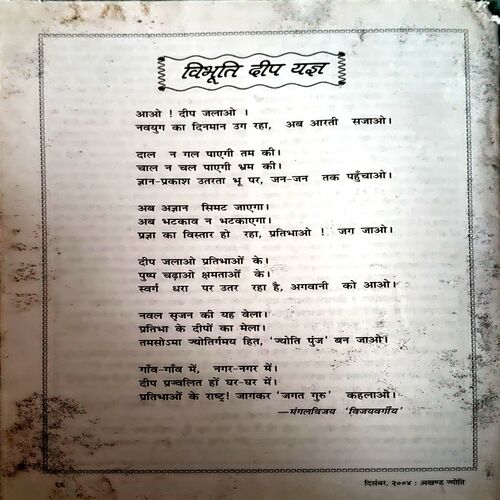 विभूति दीप यज्ञ
आओ ! दीप जलाओ ।
नवयुग का दिनमान उग रहा, अब आरती सजाओ।
दाल न गल पाएगी तम की।
चाल न चल पाएगी भ्रम की।
ज्ञान-प्रकाश उतरता भू पर, जन-जन तक पहुँचाओ।
अब अज्ञान सिमट जाएगा।
अब भटकाव न भटकाएगा।
प्रज्ञा का विस्तार हो रहा, प्रतिभाओ ! जग जाओ।
दीप जलाओ प्रतिभाओं के।
पुष्प चढ़ाओ क्षमताओं के।
स्वर्ग धरा पर उतर रहा है, अगवानी को आओ।
नवल सृजन की यह वेला।
प्रतिभा के दीपों का मेला।
तमसोऽमा ज्योतिर्गमय हित, 'ज्योति पुंज' बन जाओ।
गाँव-गाँव में, नगर-नगर में।
दीप प्रज्वलित हों घर-घर में।
प्रतिभाओं के राष्ट्र! जागकर 'जगत गुरु' कहलाओ।
—मंगलविजय 'विजयवर्गीय'
दिसंबर, २००४ : अखण्ड ज्योति